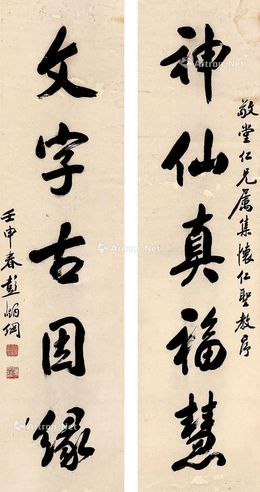 敬堂仁兄属集怀仁聖教序
神仙真福慧
文字古因緣
壬申春彭